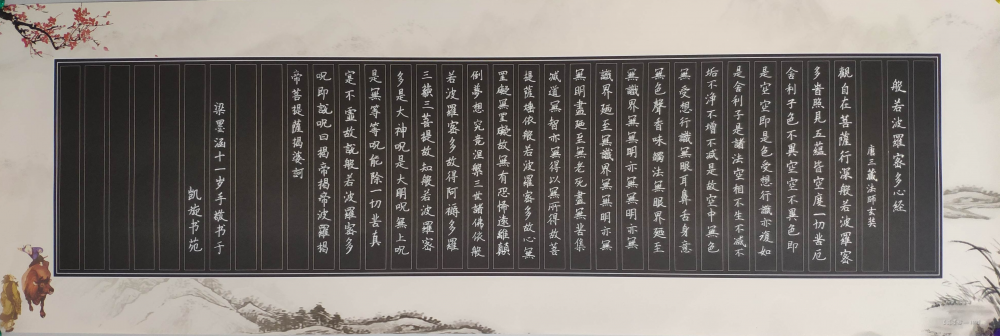 般若波羅密多心經
唐三藏法師玄奘
觀自在菩薩行深般若波羅密
多旹照見五蘊皆空度一切苦厄
舍利子色不異空空不異色即
是空空即是色受想行識亦復如
是舍利子是諸法空相不生不滅不
垢不淨不增不減是故空中無色
無受想行識無眼耳鼻舌身意
無色聲香味觸法無眼界廼至
無識界無無明亦無無明亦無
識界廼至無識界無無明亦無
無明盡廼至無老死盡無苦集
滅道無智亦無得以無所得故菩
提薩埵依般若波羅密多故心無
罣礙無罣礙故無有恐怖遠離顛
倒夢想究竟涅槃三世諸佛依般
若波羅密多故得阿耨多羅
三藐三菩提故知般若波羅密
多是大神呪是大明呪無上呪
是無等等呪能除一切苦真
寔不虛故說般若波羅密多
呪即說呪曰揭帝揭帝波羅揭
帝菩提薩揭婆訶
梁墨涵十一岁手敬书于
凯旋书苑